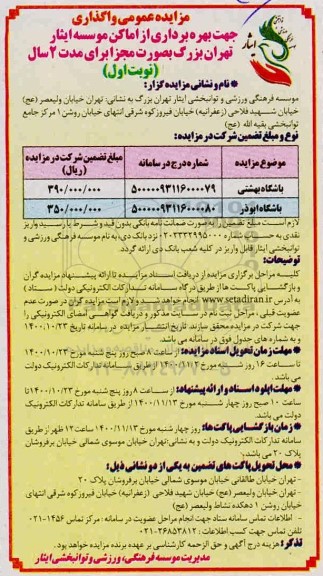 مزایده عمومی واگذاری
جهت بهره برداری از اماکن موسسه ایثار
تهران بزرگ بصورت مجزا برای مدت ۲ سال
(نوبت اول)
ایثار
* نام و نشانی مزایده گزار:
موسسه فرهنگی ورزشی و توانبخشی ایثار تهران بزرگ به نشانی: تهران خیابان ولیعصر (عج)
خیابان شهید فلاحی (زعفرانیه) خیابان فیروزکوه شرقی انتهای خیابان روشن ۱ مرکز جامع
توانبخشی بقیه الله (عج)
نوع و مبلغ تضمین شرکت در مزایده:
موضوع مزایده شماره درج در سامانه مبلغ تضمین شرکت در مزایده (ریال)
باشگاه بهشتی ۵۰۰۰۰۰۹۳۱۱۶۰۰۰۰۷۹ ۳۹۰/۰۰۰/۰۰۰
باشگاه ابوذر ۵۰۰۰۰۰۹۳۱۱۶۰۰۰۰۸۰ ۳۵۰/۰۰۰/۰۰۰
لازم است مبلغ تضمین ارایه صورت ضمانت نامه بانکی بدون قید و شرط یا رسید واریز
نقدی به حساب شماره نزد بانک دی، به نام موسسه فرهنگی ورزشی و
توانبخشی ایثار قابل واریز در کلیه شعب بانک دی ارائه گردد.
توضیحات:
کلیه مراحل برگزاری مزایده از دریافت اسناد مزایده تا ارائه پیشنهاد مزایده گران
و بازگشایی پاکت ها از طریق درگاه سامانه تدارکات الکترونیکی دولت (ستاد)
به آدرس www.setadiran.ir انجام خواهد شد و لازم است مزایده گران در صورت عدم
عضویت قبلی، مراحل ثبت نام در سایت مذکور و دریافت گواهی امضای الکترونیکی را
جهت شرکت در مزایده محقق سازند. تاریخ انتشار مزایده در سامانه تاریخ ۱۴۰۰/۱۰/۲۳
و به شماره های جدول فوق در سامانه می باشد.
* مهلت زمان تحویل اسناد مزایده: از ساعت ۸ صبح روز پنج شنبه مورخ ۱۴۰۰/۱۰/۲۳
تا ساعت ۱۶ روز شنبه مورخ از طریق سامانه تدارکات الکترونیک
دولت می باشد.
* مهلت اپلود اسناد و ارائه پیشنهاد: از ساعت ۸ روز پنج شنبه مورخ ۱۴۰۰/۱۰/۲۳ تا
ساعت ۱۰ صبح روز چهار شنبه مورخ ۱۴۰۰/۱۱/۱۳ از طریق سامانه تدارکات الکترونیک
دولت می باشد.
* زمان بازگشایی پاکت ها: روز چهار شنبه مورخ ۱۴۰۰/۱۱/۱۳ ساعت ۱۲ ظهر از طریق
سامانه تدارکات الکترونیک دولت و به نشانی: تهران خیابان موسوی شمالی خیابان برفروشان
پلاک ۲۰ می باشد
* محل تحویل پاکت های تضمین به یکی از دو نشانی ذیل:
- تهران خیابان طالقانی خیابان موسوی شمالی خیابان برفروشان پلاک ۲۰
- تهران خیابان ولیعصر (عج) خیابان شهید فلاحی (زعفرانیه) خیابان فیروزکوه شرقی انتهای
خیابان روشن ۱ دهکده نشاط ولیعصر (عج)
- اطلاعات تماس سامانه ستاد جهت انجام مراحل عضویت در سامانه: مرکز تماس ۱۴۵۶-۰۲۱
تلفن تماس جهت کسب اطلاعات: ۲۶۸۵۳۸۱۲-۰۲۱
تذکر: هزینه درج آگهی و حق الزحمه کارشناسی بر عهده برنده مزایده خواهد بود.
مدیریت موسسه فرهنگی، ورزشی و توانبخشی ایثار